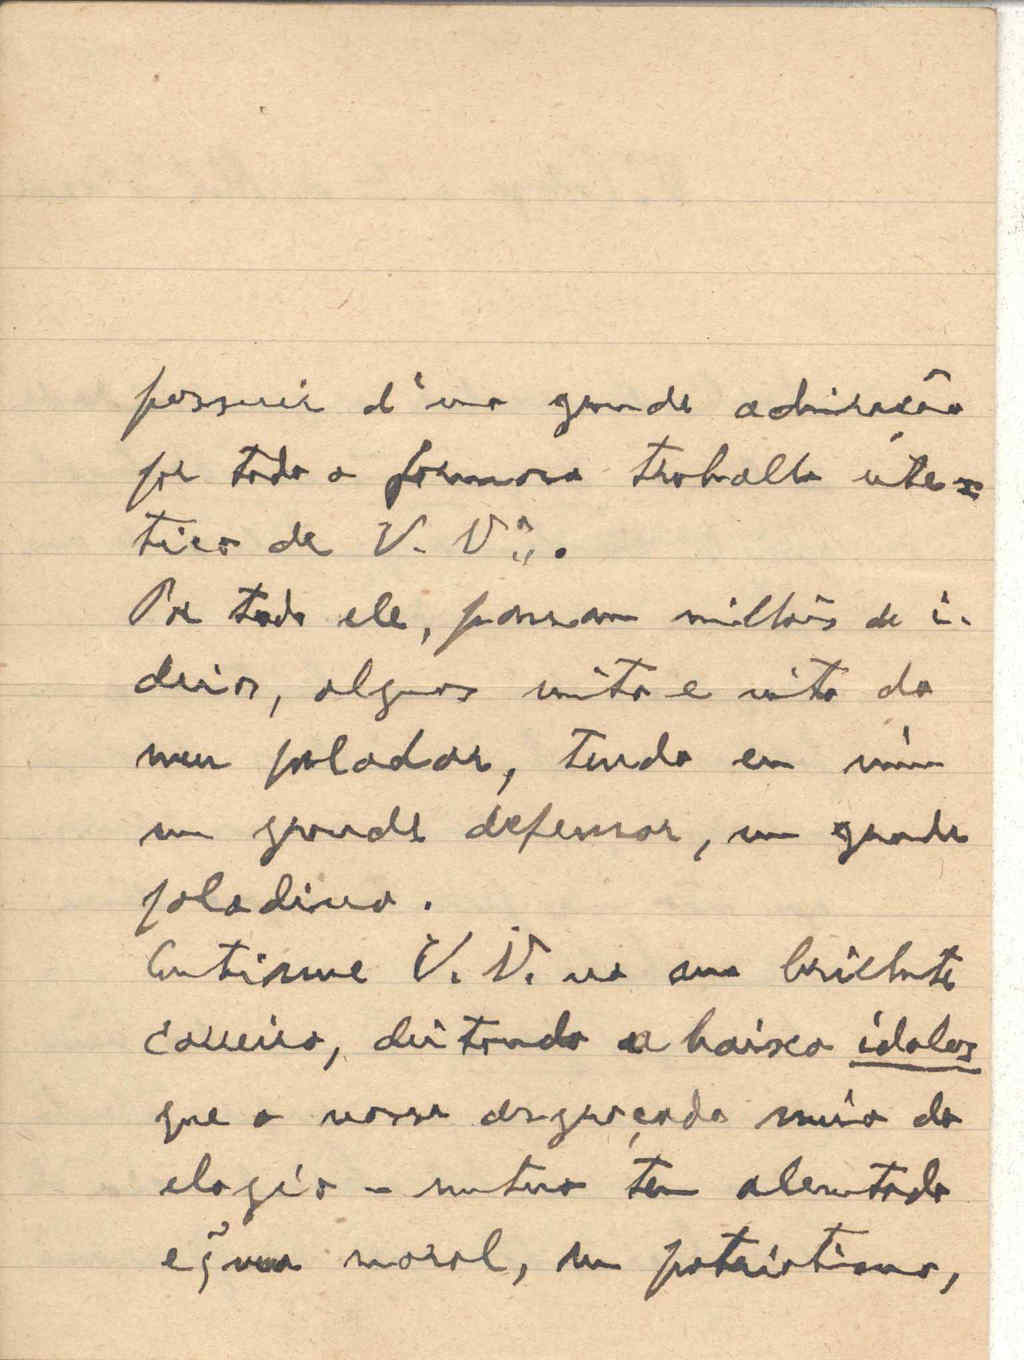 possuir d'uma grande admiração
por todo o formoso trabalho
tico de V. V.ª.
Por todo ele, passam milhões de i-
deias, algumas muito e muito do
meu paladar, tendo em mim
um grande defensor, um grande
paladino.
Continue V. V. na sua brilhante
carreira, deitando a baixo idolos
que o nosso desgraçado meio do
elogio-mutuo tem alentado
moral, sem patriotismo,